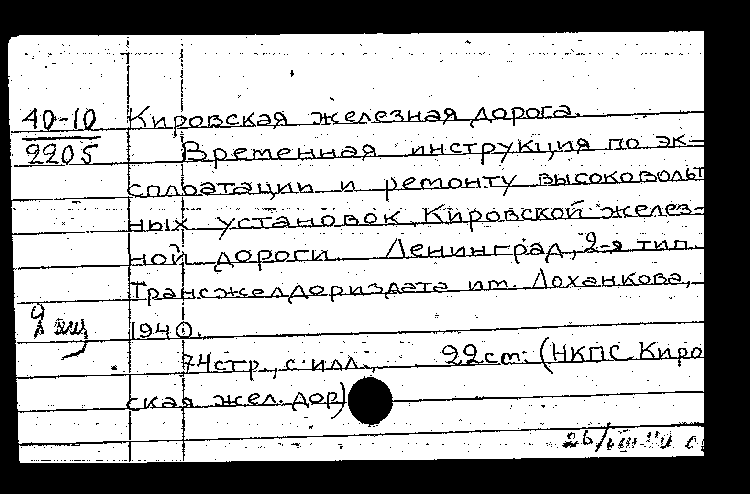 40-10 Кировская железная дорога.
2205 Временная инструкция по эк-
сплоатации и ремонту высоковольт
ных установок Кировской желез-
ной дороги Ленинград, 2-я тип.
Трансжелдориздата им. Лоханкова,
2 экз 1940.
74стр., с илл., 22см. (НКПС Киро
ская жел. дор)